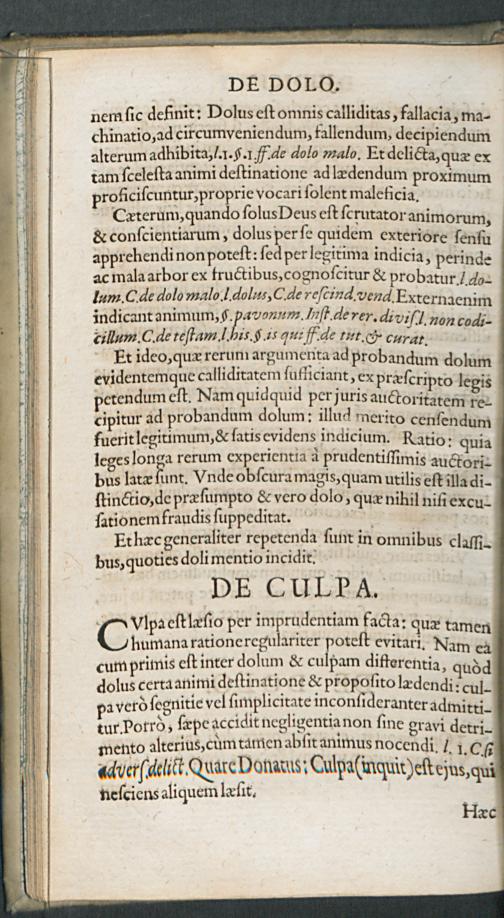 DE DOLO.
nem ſic definit: Dolus eſt omnis calliditas, fallacia, ma-
chinatio, ad circumveniendum, fallendum, decipiendum
alterum adhibita, l.1.§.1.ff.de dolo malo. Et delicta, quæ ex
tam ſceleſta animi deſtinatione ad lædendum proximum
proficiſcuntur, proprie vocari ſolent maleficia.
Cæterum, quando ſolus Deus eſt ſcrutator animorum,
& conſcientiarum, dolus per ſe quidem exteriore ſenſu
apprehendi non poteſt: ſed per legitima indicia, perinde
ac mala arbor ex fructibus, cognoſcitur & probatur. l.do-
lum.C.de dolo malo.l.dolus, C.de reſcind.vend. Externa enim
indicant animum, §. pavonum. Inſt.de rer. diviſ.l. non codi-
cillum.C.de teſtam.l.his.§.is qui ff.de tut.& curat.
Et ideo, quæ rerum argumenta ad probandum dolum
evidentemque calliditatem ſufficiant, ex præſcripto legis
petendum eſt. Nam quidquid per juris auctoritatem re-
cipitur ad probandum dolum: illud merito cenſendum
fuerit legitimum, & ſatis evidens indicium. Ratio: quia
leges longa rerum experientia à prudentiſſimis auctori-
bus latæ ſunt. Vnde obſcura magis, quam utilis eſt illa di-
ſtinctio, de præſumpto & vero dolo, quæ nihil niſi excu-
ſationem fraudis ſuppeditat.
Et hæc generaliter repetenda ſunt in omnibus claſſi-
bus, quoties doli mentio incidit.
DE CULPA.
CVlpa eſt læſio per imprudentiam facta: quæ tamen
humana ratione regulariter poteſt evitari. Nam ea
cum primis eſt inter dolum & culpam differentia, quòd
dolus certa animi deſtinatione & propoſito lædendi: cul-
pa verò ſegnitie vel ſimplicitate inconſideranter admitti-
tur. Porrò, ſæpe accidit negligentia non ſine gravi detri-
mento alterius, cùm tamen abſit animus nocendi. l. 1. C.ſi
adverſ.delict. Quare Donatus: Culpa (inquit) eſt ejus, qui
neſciens aliquem læſit.
Hæc